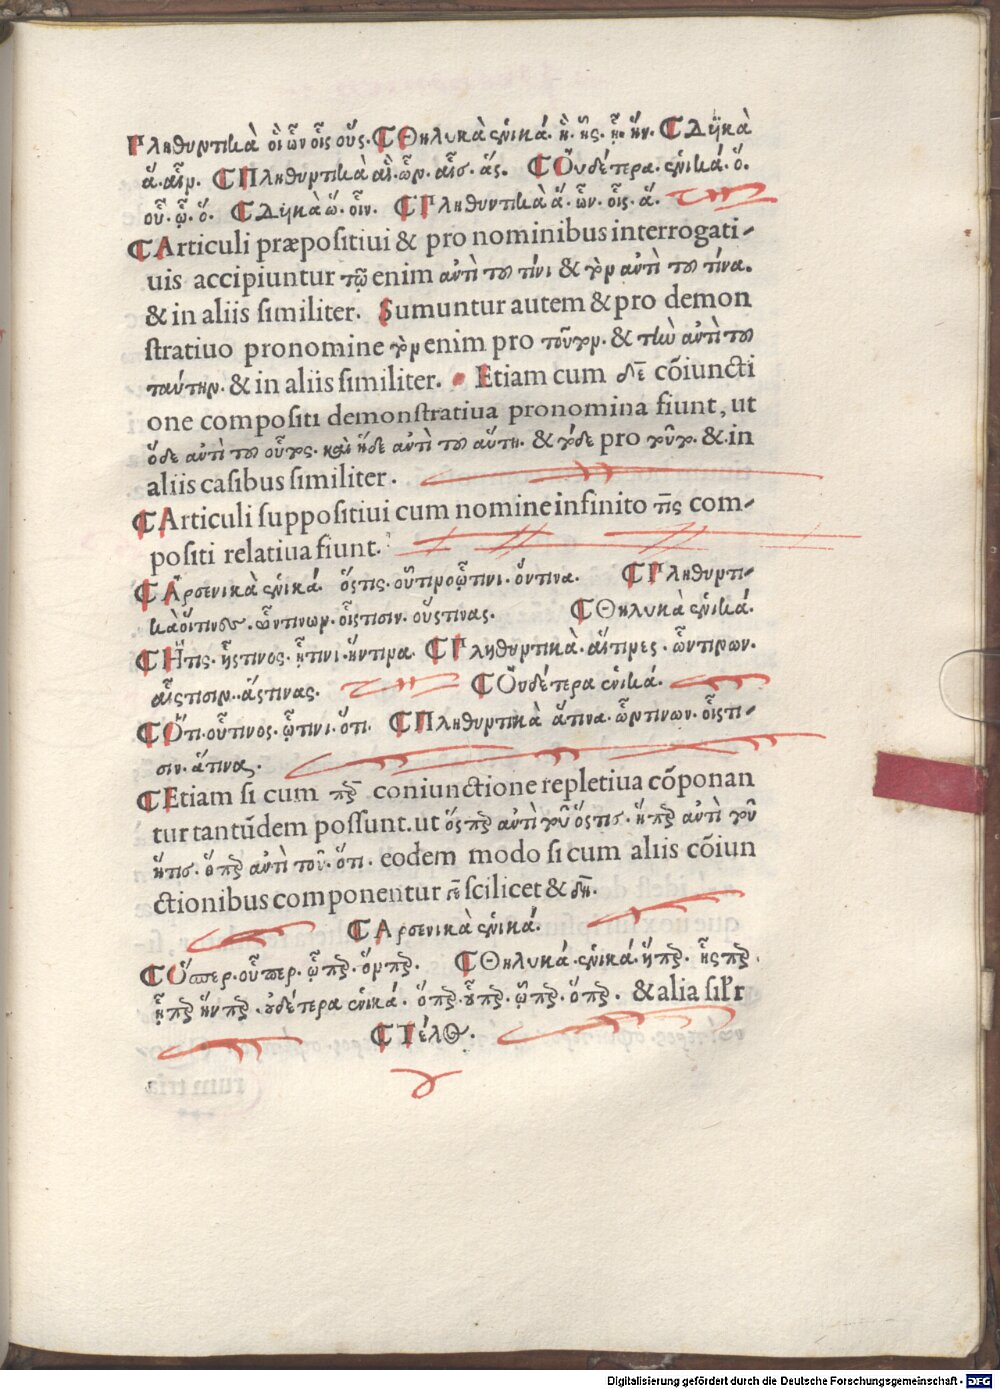 Πληθυντικὰ οἳ ὧν οἷς οὕς. ¶ Θηλυκὰ ἑνικά. ἥ. ἧς. ᾗ. ἥν. ¶ Δυϊκὰ
ἅ. αἷν. ¶ Πληθυντικὰ αἵ. ὧν. αἷσ. ἅς. ¶ Οὐδέτερα. ἑνικά. ὅ.
οὗ. ᾧ. ὅ. ¶ Δυϊκὰ ὥ. οἷν. ¶ Πληθυντικὰ ἅ. ὧν. οἷς. ἅ.
¶ Articuli præpositiui & pro nominibus interrogati-
uis accipiuntur τῷ enim ἀντὶ του τίνι & τὸν ἀντὶ του τίνα.
& in aliis similiter. Sumuntur autem & pro demon
stratiuo pronomine τὸν enim pro τοῦτον. & τὴν ἀντὶ του
ταύτην. & in aliis similiter. Etiam cum δὲ cōiuncti
one compositi demonstratiua pronomina fiunt, ut
ὅδε ἀντὶ του οὗτος. καὶ ἥδε ἀντὶ του αὕτη. & τόδε pro τοῦτο. & in
aliis casibus similiter.
¶ Articuli suppositiui cum nomine infinito τὶς com-
positi relatiua fiunt.
¶ Ἀρσενικὰ ἑνικά. ὅςτις. οὗτινος ᾧτινι. ὅντινα. ¶ Πληθυντι-
κὰ οἵτινες. ὧντινων. οἷςτισιν. οὕςτινας. ¶ Θηλυκὰ ἑνικά.
¶ Ἥτις. ἧςτινος. ᾗτινι. ἥντινα. ¶ Πληθυντικὰ. αἵτινες. ὧντινων.
αἷςτισιν. ἅςτινας. ¶ Οὐδέτερα ἑνικά.
¶ Ὅτι. οὗτινος. ᾧτινι. ὅτι. ¶ Πληθυντικὰ ἅτινα. ὧντινων. οἷςτι-
σιν. ἅτινα.
¶ Etiam si cum περ coniunctione repletiua cōponan
tur tantūdem possunt. ut ὅςπερ ἀντὶ τοῦ ὅςτις. ἥπερ ἀντὶ τοῦ
ἥτις. ὅπερ ἀντὶ τοῦ. ὅτι. eodem modo si cum aliis cōiun
ctionibus componentur τε scilicet & δή.
¶ Ἀρσενικὰ ἑνικά.
¶ Ὅσπερ. οὗπερ. ᾧπερ. ὅνπερ. ¶ Θηλυκά. ἑνικά. ἥπερ. ἧςπερ.
ᾗπερ ἥνπερ. οὐδέτερα ἑνικά. ὅπερ. οὗπερ. ᾧπερ. ὅπερ. & alia sil̄r
¶ Τέλος.
Digitalisierung gefördert durch die Deutsche Forschungsgemeinschaft - DFG